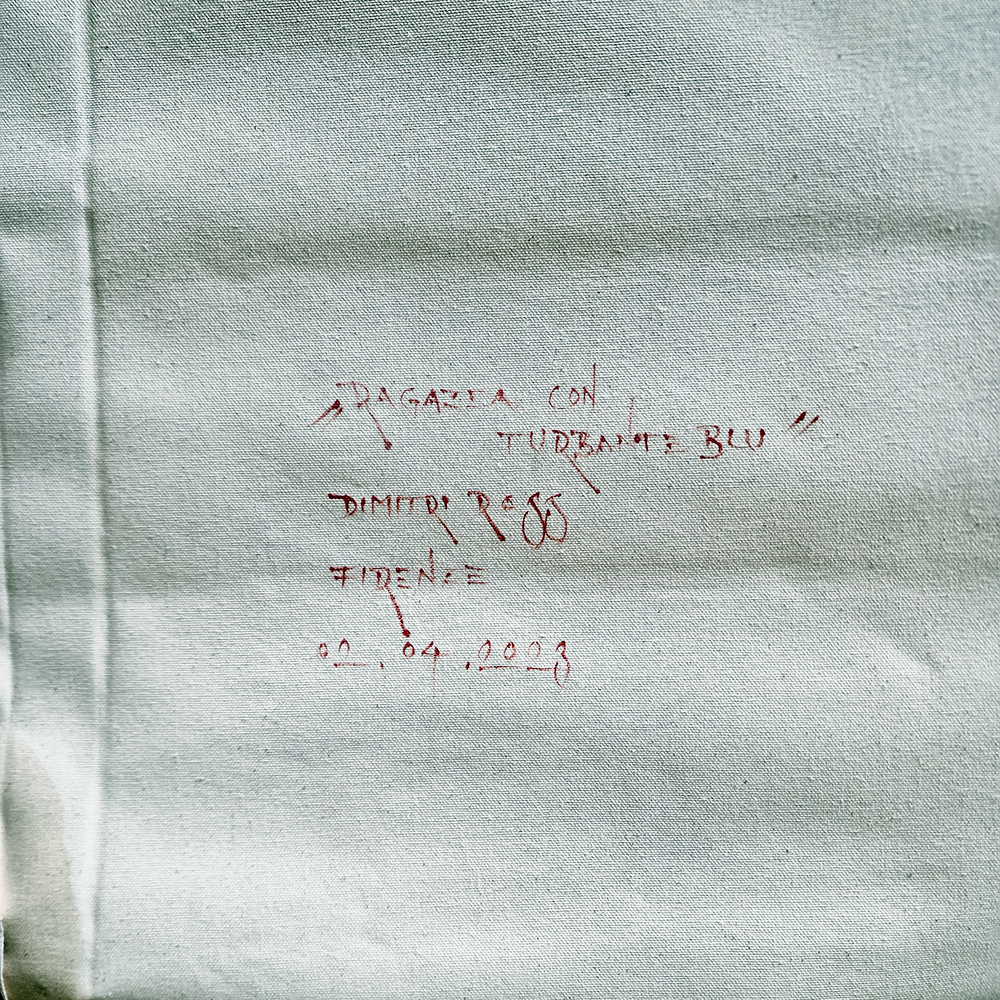 "RAGAZZA CON
TURBANTE BLU"
DIMITRI ROSS
FIRENZE
02.04.2023